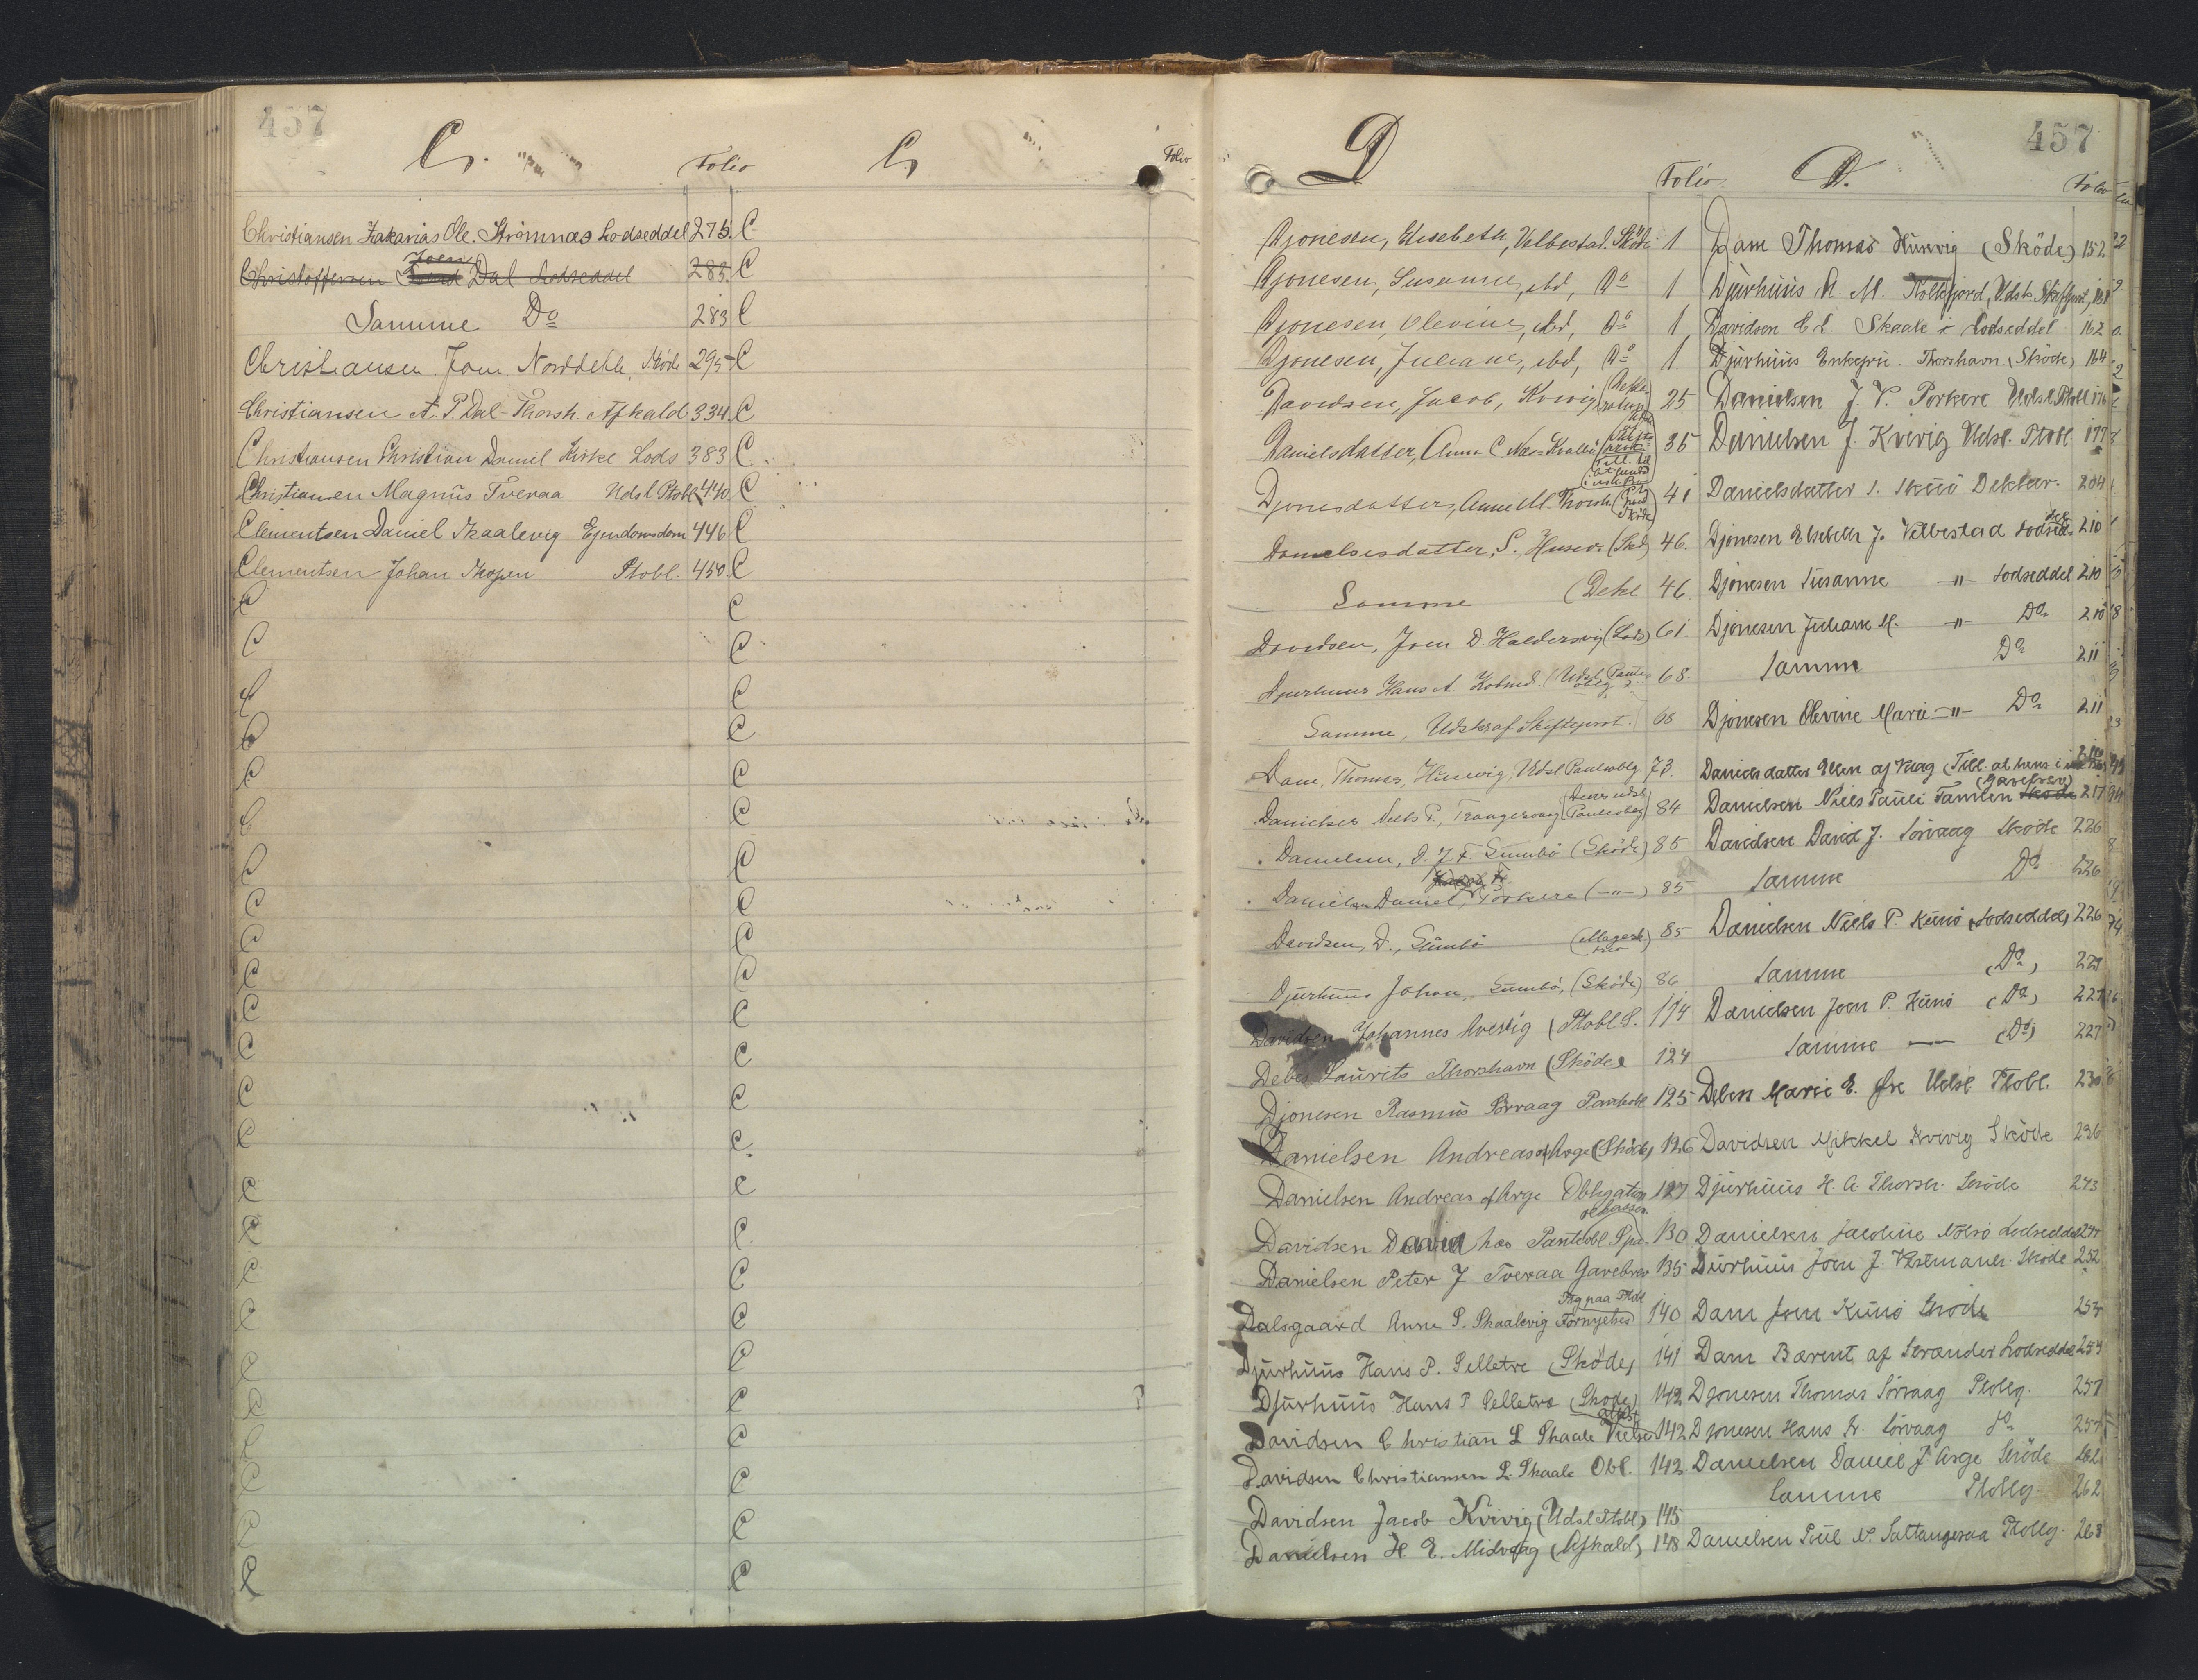 457
C. Folio C. Folio
Christiansen Zakarias Ole. Strömnæs Lodseddel 275. C
Christoffersen Joen Dal Lodseddel 283. C
Samme Do 283 C
Christiansen Joen Norddehle, Sköde 295 C
Christiansen A. P. Dal - Thorsh. Afkald 334. C
Christiansen Christian Daniel Kirke Lods 383 C
Christiansen Magnus Tveraa Udsl Ptobl 440. C
Clementsen Daniel Skaalevig Ejendomsdom 446 C
Clementsen Johan Skopen Ptobl. 450. C
C C
C C
C C
C C
C C
C C
C C
C C
C C
C C
C C
C C
C C
C C
C C
C C
C C
C C
C C
C C
C C
C C
C C
C C
457
D Folio
Djonesen, Elisebeth, Velbestad. Sköde 1
Djonesen, Susanne, ibd, Do 1
Djonesen, Olevine, ibd, Do 1
Djonesen, Juliane, ibd, Do 1.
Davidsen, Jacob, Kvivig 25
Danielsdatter, Anna C. Næs 35
Djonesdatter, Anne M. Thorsh. Sköde 41
Danielsesdatter, S. Husev. (Sköd) 46.
Samme (Dekl 46
Davidsen, Joen D. Haldersvig (Lods) 61.
Djurhuus Hans A. Kobmd. (Udsl. Panteoblg) 68.
Samme, Udskr af Skifteprot. 68
Dam, Thomas, Husevig, Udsl Panteoblg 73.
Danielsen Niels P., Trangisvaag Panteoblg 84
Danielsen, D. J. F. Sumbö (Sköde) 85
Danielsen Daniel, Porkere (-"-) 85
Davidsen, D., Sumbö (Mageskifte) 85
Djurhuus Johan, Sumbö, (Sköde) 86
Davidsen Johannes Kvevig (Ptobl S. 114
Debes Laurits Thorshavn (Sköde 124
Djonesen Rasmus Sörvaag Pantobl 125
Danielsen Andreas af Arge (Sköde) 126
Danielsen Andreas af Arge Obligation 127
Davidsen David hos Panteobl 130
Danielsen Peter J Tveraa Gavebrev 135
Dalsgaard Anne S. Skaalevig Fornyelses 140
Djurhuus Hans P. Selletræ (Sköde) 141
Djurhuus Hans P Selletræ (Skode) 142
Davidsen Christian L Skaale 142
Davidsen Christiansen L. Skaale Obl. 142
Davidsen Jacob Kvivig (Udsl Ptobl) 145
Danielsen H E. Midvaag (Afkald) 148
D. Folio
Dam Thomas Husevig (Sköde) 152
Djurhuus A. M. Kollefjord, Udsk. Skiftprot,
Davidsen C L. Skaale i Lodseddel 162
Djurhuus Enkefru. Thorshavn (Sköde) 164
Danielsen J. V. Porkere Udsl Ptobl
Danielsen J. Kvivig Udsl. Ptobl. 177
Danielsdatter S. Skuö Deklar. 204
Djonesen Elsebeth J. Velbestad Lodsed. 210
Djonesen Susanne -"- Lodseddel 210
Djonesen Juliane M. -"- Do 210
Samme Do 211
Djonesen Olevine Marie -"- Do 211
Danielsdatter Ellen af Vaag
Danielsen Niels Pauli Famien (Gavebrev) Skode 217
Davidsen David J. Sörvaag Sköde 226
Samme Do 226
Danielsen Niels P. Kunö (Lodseddel) 226
Samme (Do)
Danielsen Joen P. Kunö (Do) 227
Samme — (Do) 227
Debes Marie E. Öre Udsl Ptobl. 230
Davidsen Mikkel Kvivig Sköde 236
Djurhuus H. A. Thorsh. Sköde 243
Danielsen Jacobine Nolsö Lodseddel
Djurhuus Joen J. Vestmanh. Skode 252
Dam Joen Kunö Skode 253
Dam Barent af Strander Lodseddel 254
Djonesen Thomas Sörvaag Ptoblg. 257
Djonesen Hans Fr. Sörvaag Do 257
Danielsen Daniel J. Arge Sköde 262
Samme Ptoblg. 262
Danielsen Poul N. Saltangeraa Ptoblg. 263